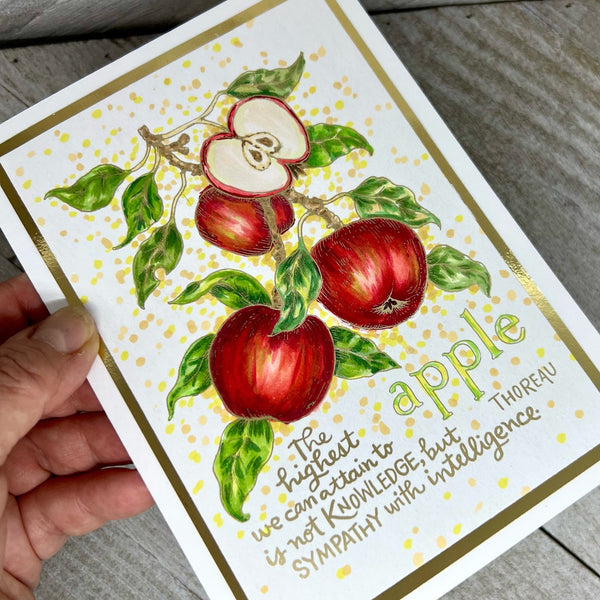 apple
The
highest
we can attain to
is not KNOWLEDGE, but
SYMPATHY with intelligence.
THOREAU